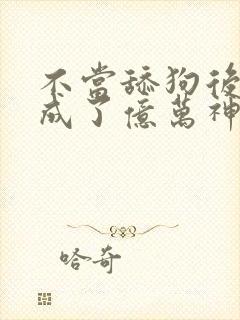 不當舔狗後
成了億萬神
哈奇